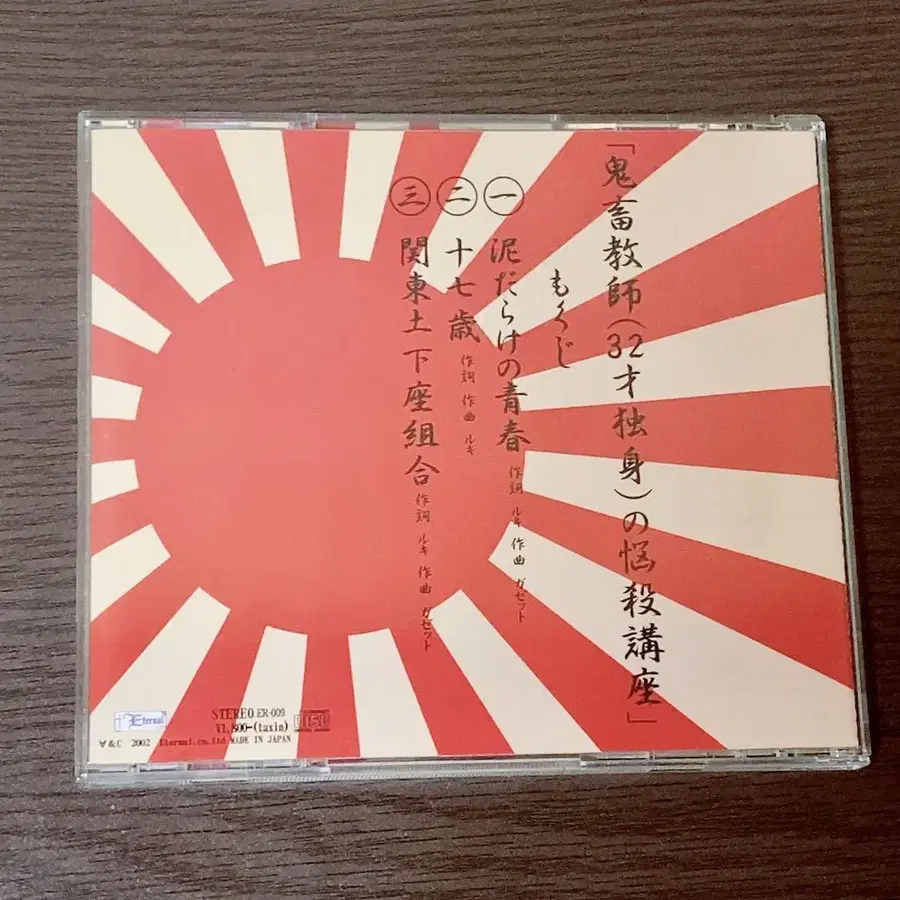 「鬼畜教師(32才独身)の悩殺講座」
もくじ
一 泥だらけの青春 作詞 ルキ 作曲 ガゼット
二 十七歳 作詞 作曲 ルキ
三 関東土下座組合 作詞 ルキ 作曲 ガゼット
Eternal
STEREO ER-009
(taxin) DISC
∀&C 2002 Eternal.co.ltd MADE IN JAPAN